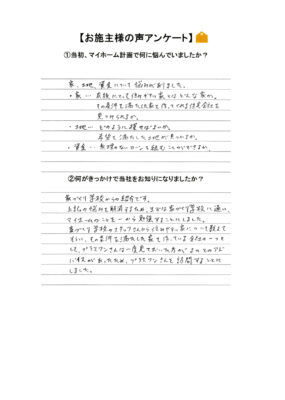 【お施主様の声アンケート】
①当初、マイホーム計画で何に悩んでいましたか？
家、土地、資産について悩みがありました。
・家… 家族にとって住みやすい家とはどんな家か。
その条件を満たした家を作ってくれる住宅会社を
見つけられるか。
・土地… どのように探せばよいか。
希望を満たした土地が見つかるか。
・資産… 無理のないローンを組むことができるか。
②何がきっかけで当社をお知りになりましたか？
家づくり学校からの紹介です。
上記の悩みを解消するため、まずは家づくり学校に通い、
マイホームのことを一から勉強することにしました。
家づくり学校のスタッフさんから住みやすい家について教えて
もらい、その条件を満たした家を作っている会社の一つと
して、プラスワンさんは一度見ておいた方がよいとのアド
バイスがあったため、プラスワンさんを訪問することに
しました。